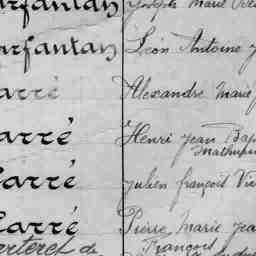 arfantan Joseph Marie
arfantan Léon Antoine
arré Alexandre Marie
arré Henri Jean Bap
Mathurin
Carré Julien françois Vi
Carré Pierre Marie Jea
arteret de François